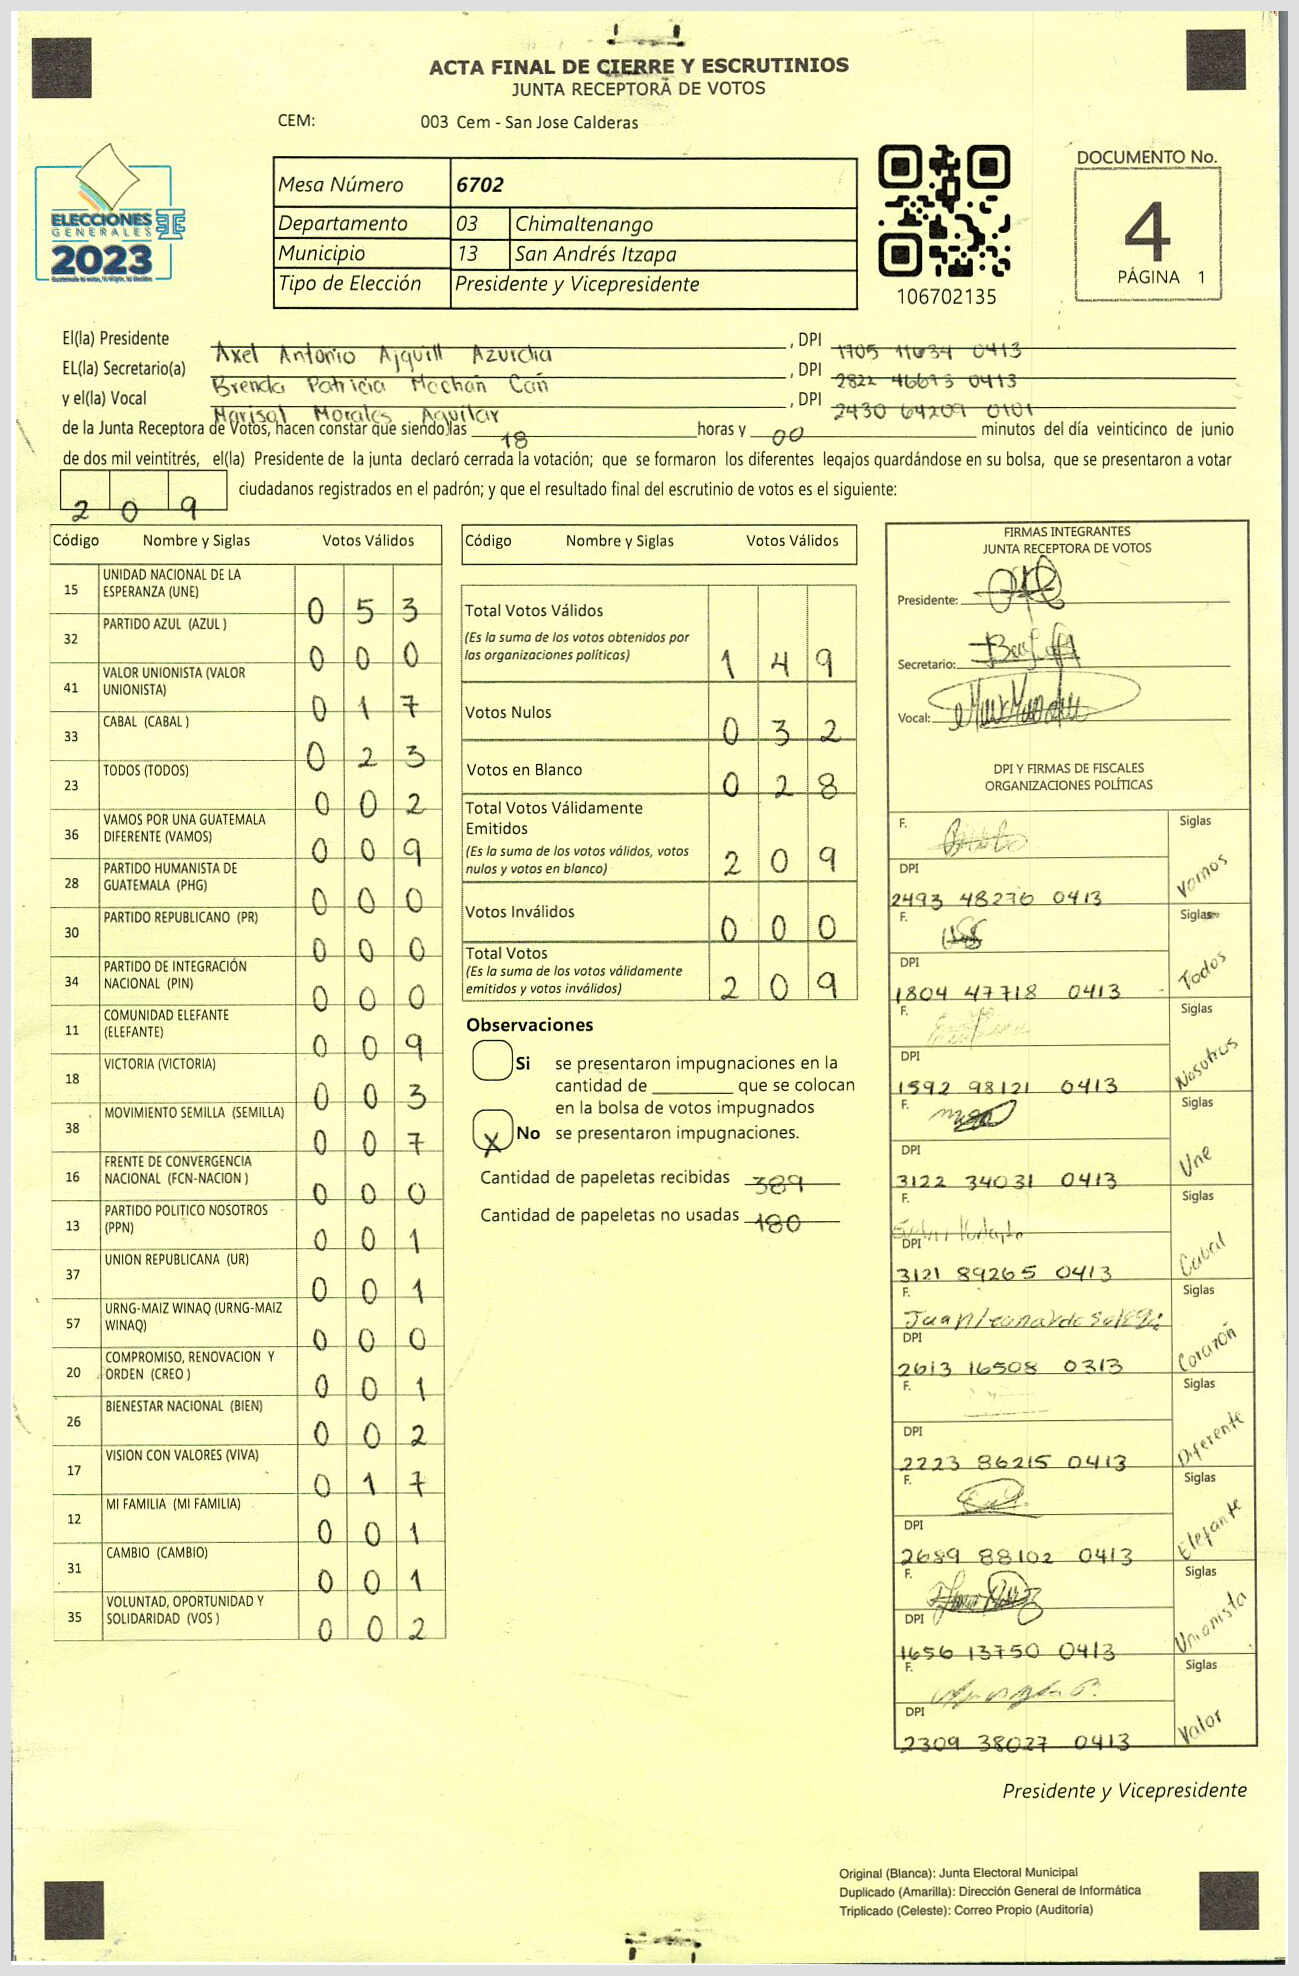 ACTA FINAL DE CIERRE Y ESCRUTINIOS
JUNTA RECEPTORA DE VOTOS
CEM: 003 Cem - San Jose Calderas
ELECCIONES
GENERALES
2023
Mesa Número 6702
Departamento 03 Chimaltenango
Municipio 13 San Andrés Itzapa
Tipo de Elección Presidente y Vicepresidente
106702135
DOCUMENTO No.
4
PÁGINA 1
El(la) Presidente Axel Antonio Ajquill Azurdia , DPI 1705 11634 0413
EL(la) Secretario(a) Brenda Patricia Mochan Can , DPI 2822 46673 0413
y el(la) Vocal Marisol Morales Aguilar , DPI 2430 64209 0101
de la Junta Receptora de Votos, hacen constar que siendo las 18 horas y 00 minutos del día veinticinco de junio
de dos mil veintitrés, el(la) Presidente de la junta declaró cerrada la votación; que se formaron los diferentes legajos guardándose en su bolsa, que se presentaron a votar
2 0 9 ciudadanos registrados en el padrón; y que el resultado final del escrutinio de votos es el siguiente:
Código Nombre y Siglas Votos Válidos
15 UNIDAD NACIONAL DE LA ESPERANZA (UNE) 0 5 3
32 PARTIDO AZUL (AZUL ) 0 0 0
41 VALOR UNIONISTA (VALOR UNIONISTA) 0 1 7
33 CABAL (CABAL ) 0 2 3
23 TODOS (TODOS) 0 0 2
36 VAMOS POR UNA GUATEMALA DIFERENTE (VAMOS) 0 0 9
28 PARTIDO HUMANISTA DE GUATEMALA (PHG) 0 0 0
30 PARTIDO REPUBLICANO (PR) 0 0 0
34 PARTIDO DE INTEGRACIÓN NACIONAL (PIN) 0 0 0
11 COMUNIDAD ELEFANTE (ELEFANTE) 0 0 9
18 VICTORIA (VICTORIA) 0 0 3
38 MOVIMIENTO SEMILLA (SEMILLA) 0 0 7
16 FRENTE DE CONVERGENCIA NACIONAL (FCN-NACION ) 0 0 0
13 PARTIDO POLITICO NOSOTROS (PPN) 0 0 1
37 UNION REPUBLICANA (UR) 0 0 1
57 URNG-MAIZ WINAQ (URNG-MAIZ WINAQ) 0 0 0
20 COMPROMISO, RENOVACION Y ORDEN (CREO ) 0 0 1
26 BIENESTAR NACIONAL (BIEN) 0 0 2
17 VISION CON VALORES (VIVA) 0 1 7
12 MI FAMILIA (MI FAMILIA) 0 0 1
31 CAMBIO (CAMBIO) 0 0 1
35 VOLUNTAD, OPORTUNIDAD Y SOLIDARIDAD (VOS ) 0 0 2
Código Nombre y Siglas Votos Válidos
Total Votos Válidos
(Es la suma de los votos obtenidos por
las organizaciones políticas) 1 4 9
Votos Nulos 0 3 2
Votos en Blanco 0 2 8
Total Votos Válidamente
Emitidos
(Es la suma de los votos válidos, votos
nulos y votos en blanco) 2 0 9
Votos Inválidos 0 0 0
Total Votos
(Es la suma de los votos válidamente
emitidos y votos inválidos) 2 0 9
Observaciones
Si se presentaron impugnaciones en la
cantidad de ________ que se colocan
en la bolsa de votos impugnados
X No se presentaron impugnaciones.
Cantidad de papeletas recibidas 389
Cantidad de papeletas no usadas 180
FIRMAS INTEGRANTES
JUNTA RECEPTORA DE VOTOS
Presidente:
Secretario:
Vocal:
DPI Y FIRMAS DE FISCALES
ORGANIZACIONES POLÍTICAS
F. Siglas Vamos
DPI
2493 48276 0413
F. Siglas Todos
DPI
1804 47718 0413
F. Siglas Nosotros
DPI
1592 98121 0413
F. Siglas Une
DPI
3122 34031 0413
F. Siglas Cabal
DPI
3121 89265 0413
F. Siglas Corazón
DPI
2613 16508 0313
F. Siglas Diferente
DPI
2223 86215 0413
F. Siglas Elefante
DPI
2689 88102 0413
F. Siglas Unionista
DPI
1656 13750 0413
F. Siglas Valor
DPI
2309 38027 0413
Presidente y Vicepresidente
Original (Blanca): Junta Electoral Municipal
Duplicado (Amarilla): Dirección General de Informática
Triplicado (Celeste): Correo Propio (Auditoría)